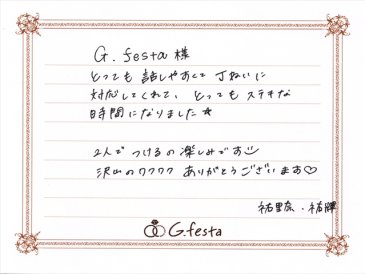 G.festa 様
とっても話しやすくて 丁ねいに
対応してくれて、とってもステキな
時間になりました★
2人で つけるの 楽しみです
沢山のワクワク ありがとうございます♡
G.festa